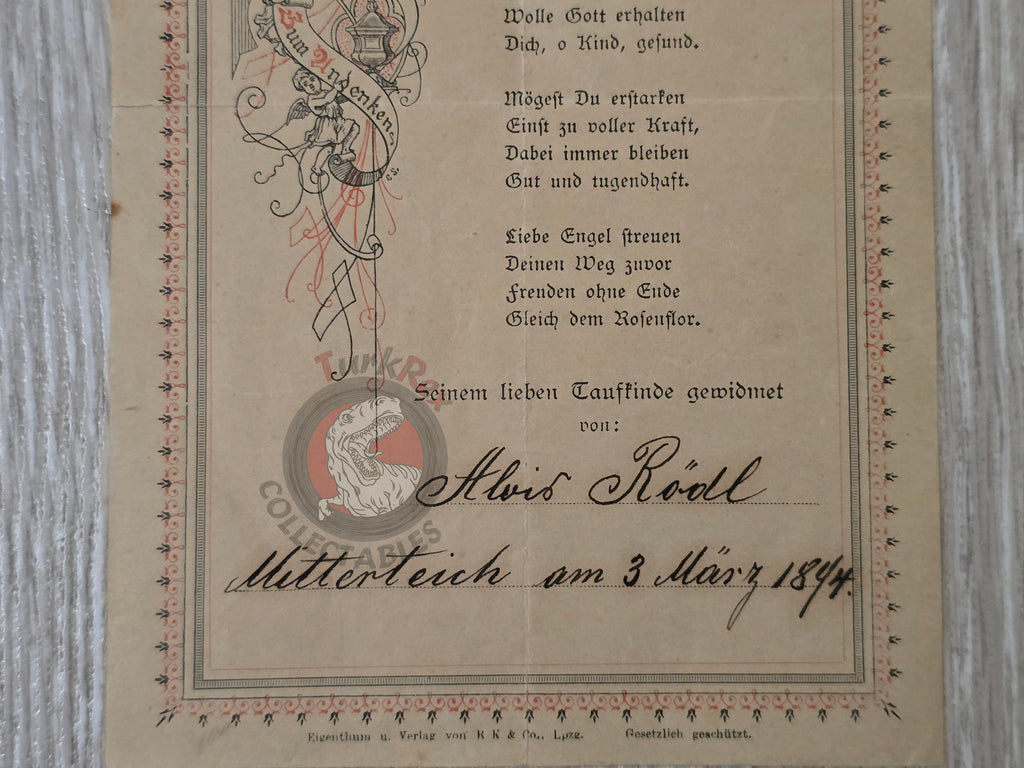 Zum Andenken
C.S.
Wolle Gott erhalten
Dich, o Kind, gesund.
Mögest Du erstarken
Einst zu voller Kraft,
Dabei immer bleiben
Gut und tugendhaft.
Liebe Engel streuen
Deinen Weg zuvor
Freuden ohne Ende
Gleich dem Rosenflor.
TurkRex
COLLECTABLES
Seinem lieben Taufkinde gewidmet
von:
Alois Rödl
Mitterteich am 3 März 1894.
Eigenthum u. Verlag von R K & Co., Lpzg. Gesetzlich geschützt.